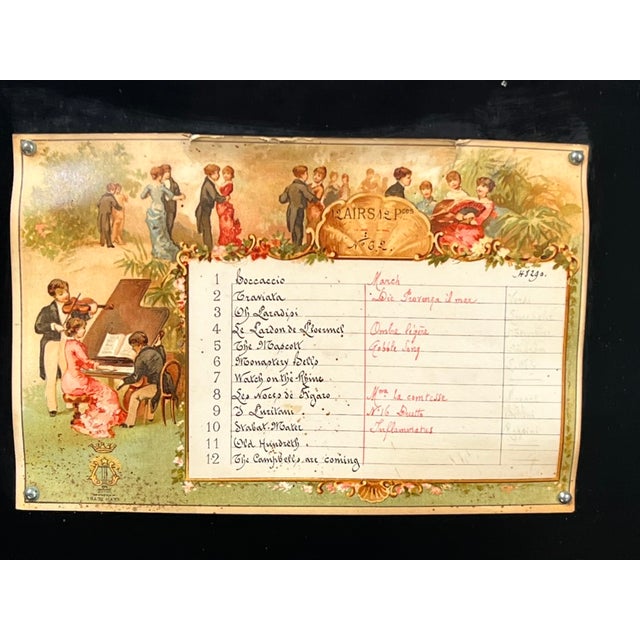 12 AIRS 12 Pces
No 62.
1 Boccaccio March
2 Traviata Die Provenza il mar
3 Oh Paradisi
4 Le Pardon de Ploermel Ombre légère
5 The Mascott Gobble Song
6 Monastery Bells
7 Watch on the Rhine
8 Les Noces de Figaro Mme la comtesse
9 I Puritani No 16 Duetto
10 Stabat Mater Inflammatus
11 Old Hundreth
12 The Campbells are coming
TRADE MARK